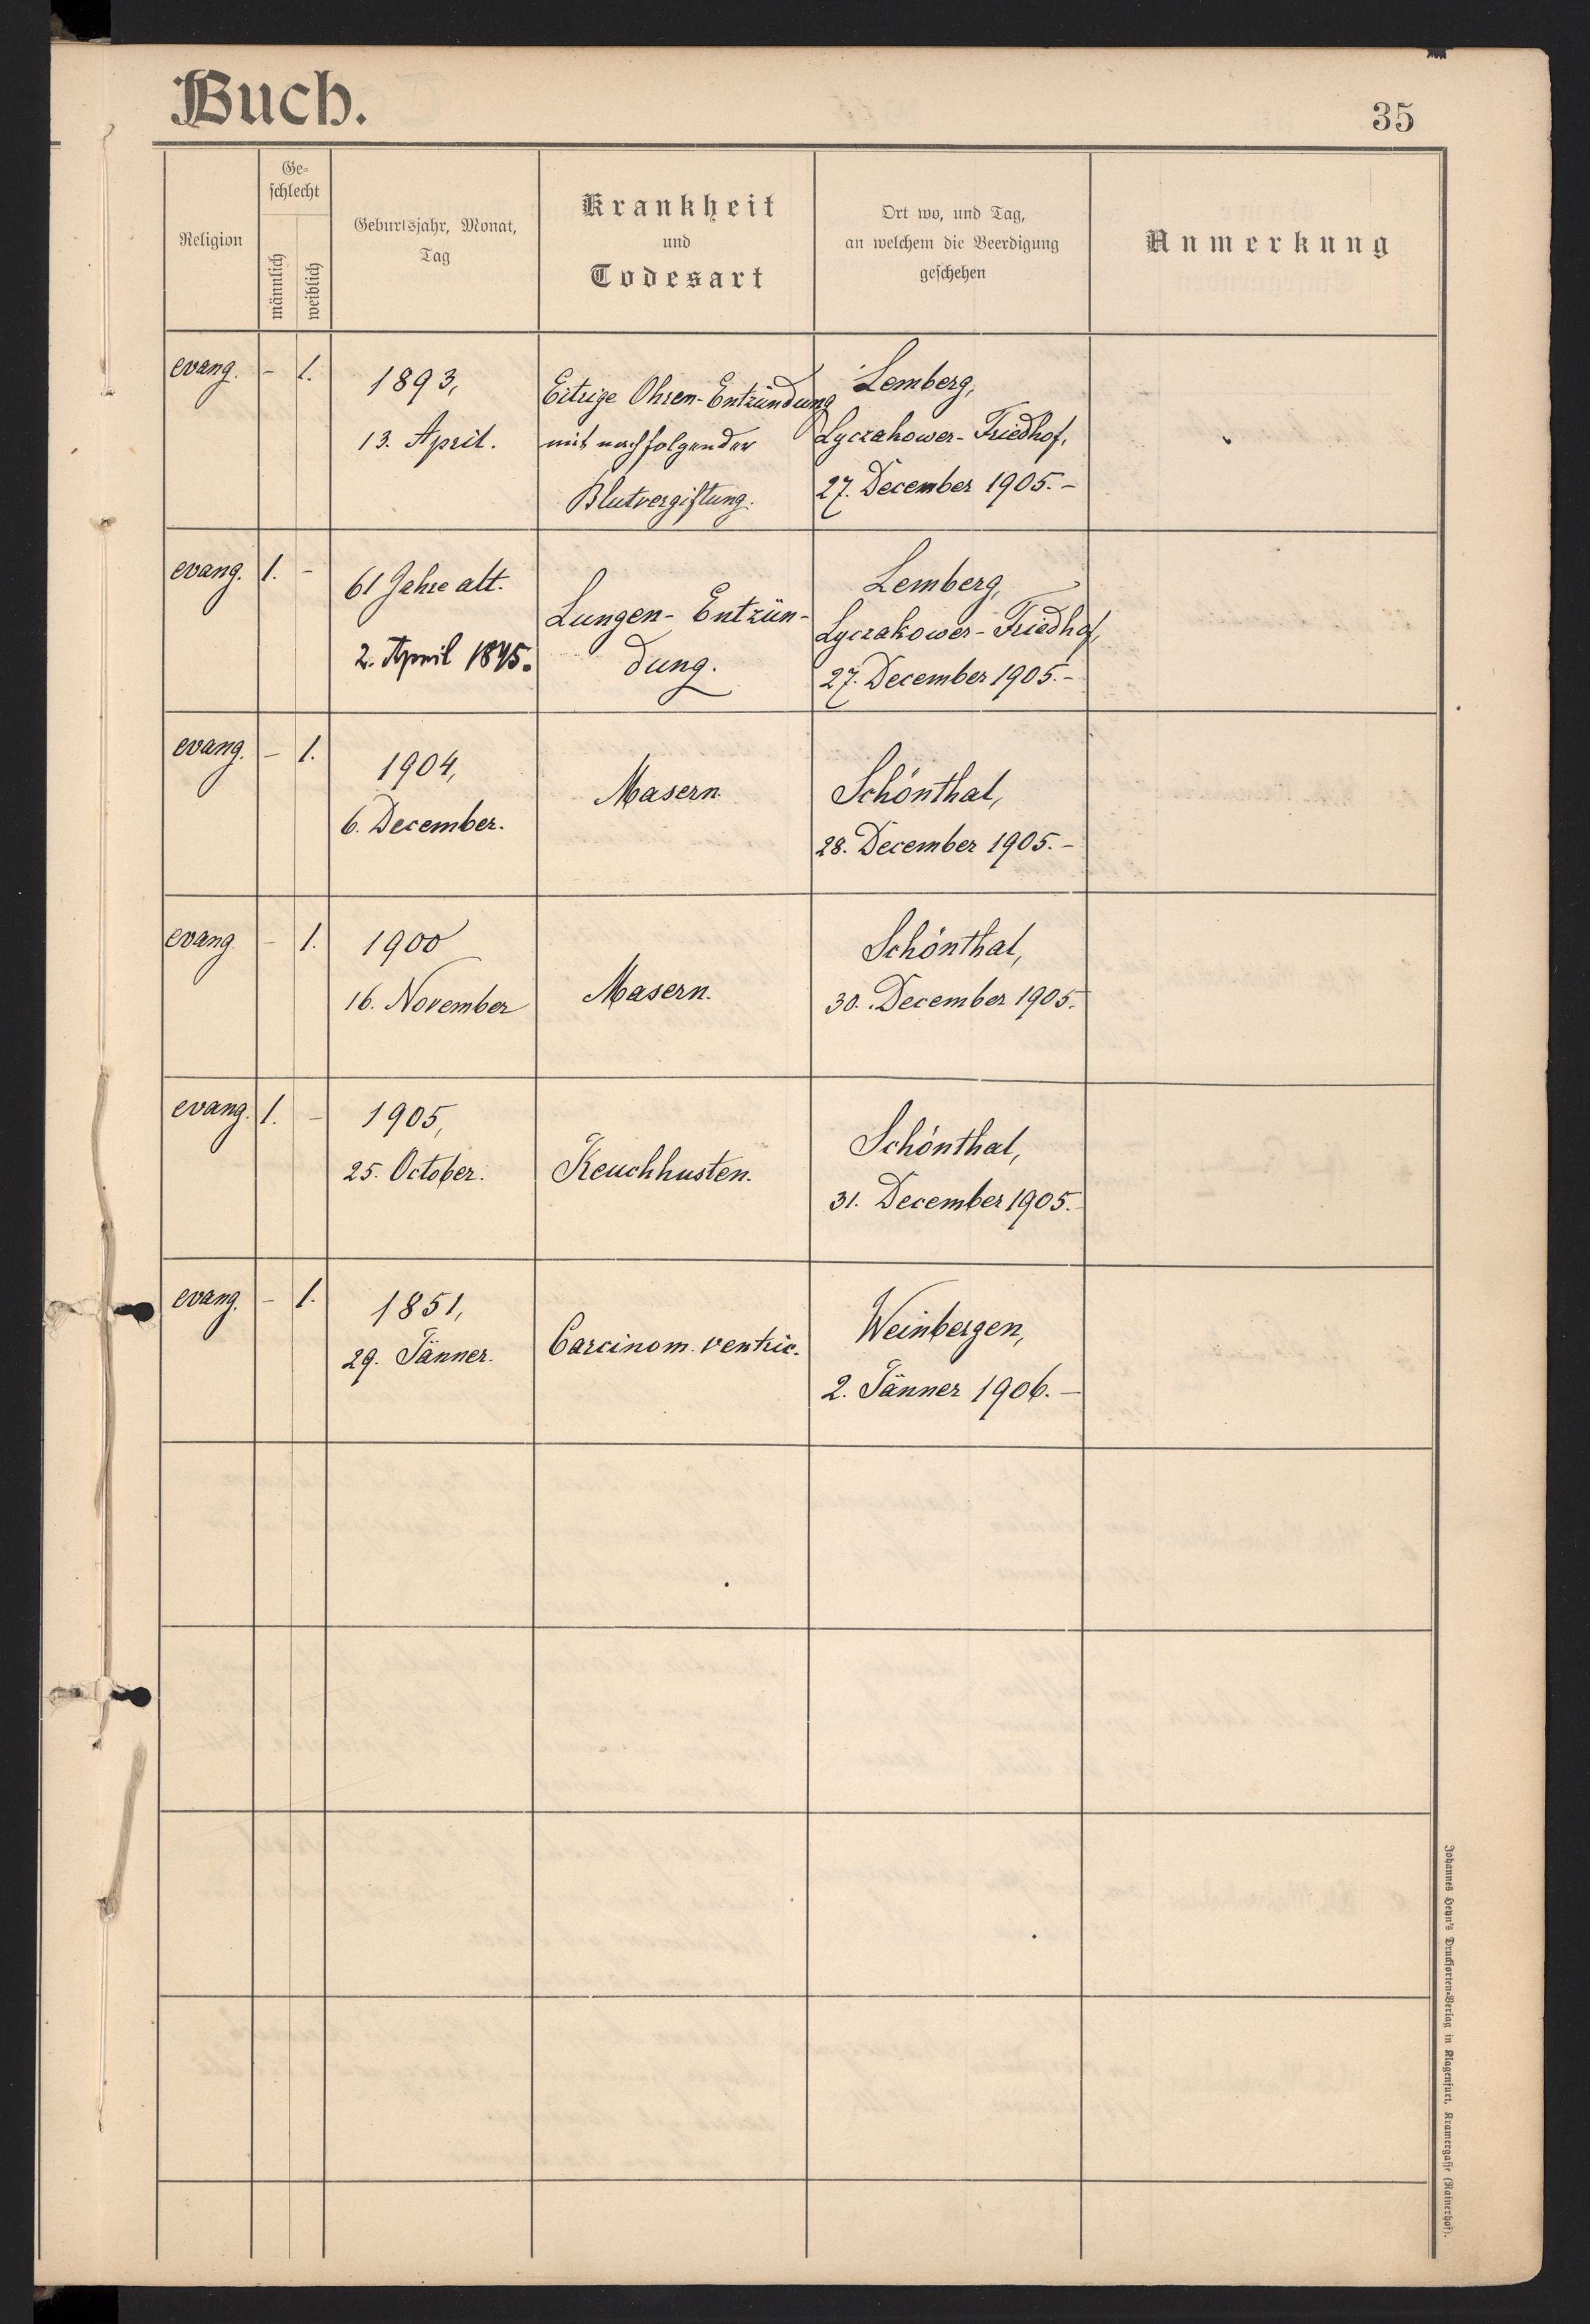 Buch.
35
Religion
Ge-
schlecht
männlich
weiblich
Geburtsjahr, Monat,
Tag
Krankheit
und
Todesart
Ort wo, und Tag,
an welchem die Beerdigung
geschehen
Anmerkung
evang. - 1. 1893,
13. April.
Eitrige Ohren-Entzündung
mit nachfolgender
Blutvergiftung.
Lemberg,
Lyczakower-Friedhof,
27. December 1905.-
evang. 1. - 61 Jahre alt.
2. April 1845.
Lungen-Entzün-
dung.
Lemberg,
Lyczakower-Friedhof,
27. December 1905.-
evang. - 1. 1904,
6. December.
Masern.
Schönthal,
28. December 1905.-
evang. - 1. 1900
16. November
Masern.
Schönthal,
30. December 1905.
evang. 1. - 1905,
25. October.
Keuchhusten.
Schönthal,
31. December 1905.-
evang. - 1. 1851,
29. Jänner.
Carcinom. ventric.
Weinbergen,
2. Jänner 1906.-
Johannes Heyn's Drucksorten-Verlag in Klagenfurt, Kramergasse (Rainerhof).